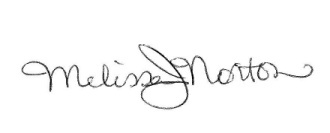 Melissa J Norton